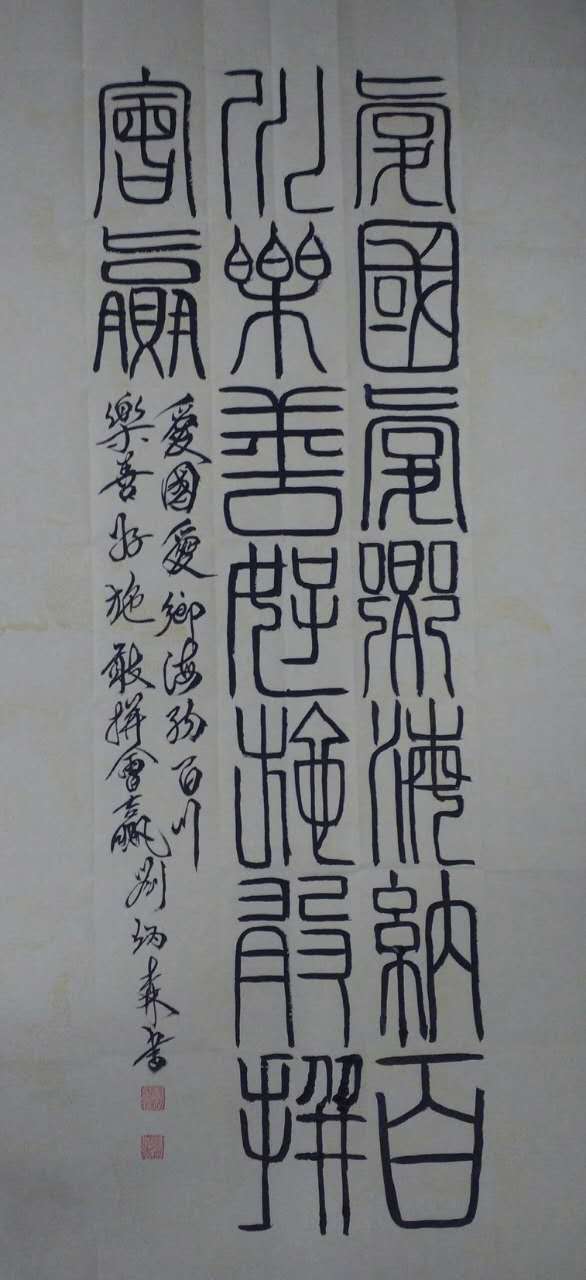 愛國愛鄉海納百
川樂善好施敢拼
會贏
愛國愛鄉海納百川
樂善好施敢拼會贏劉炳森書